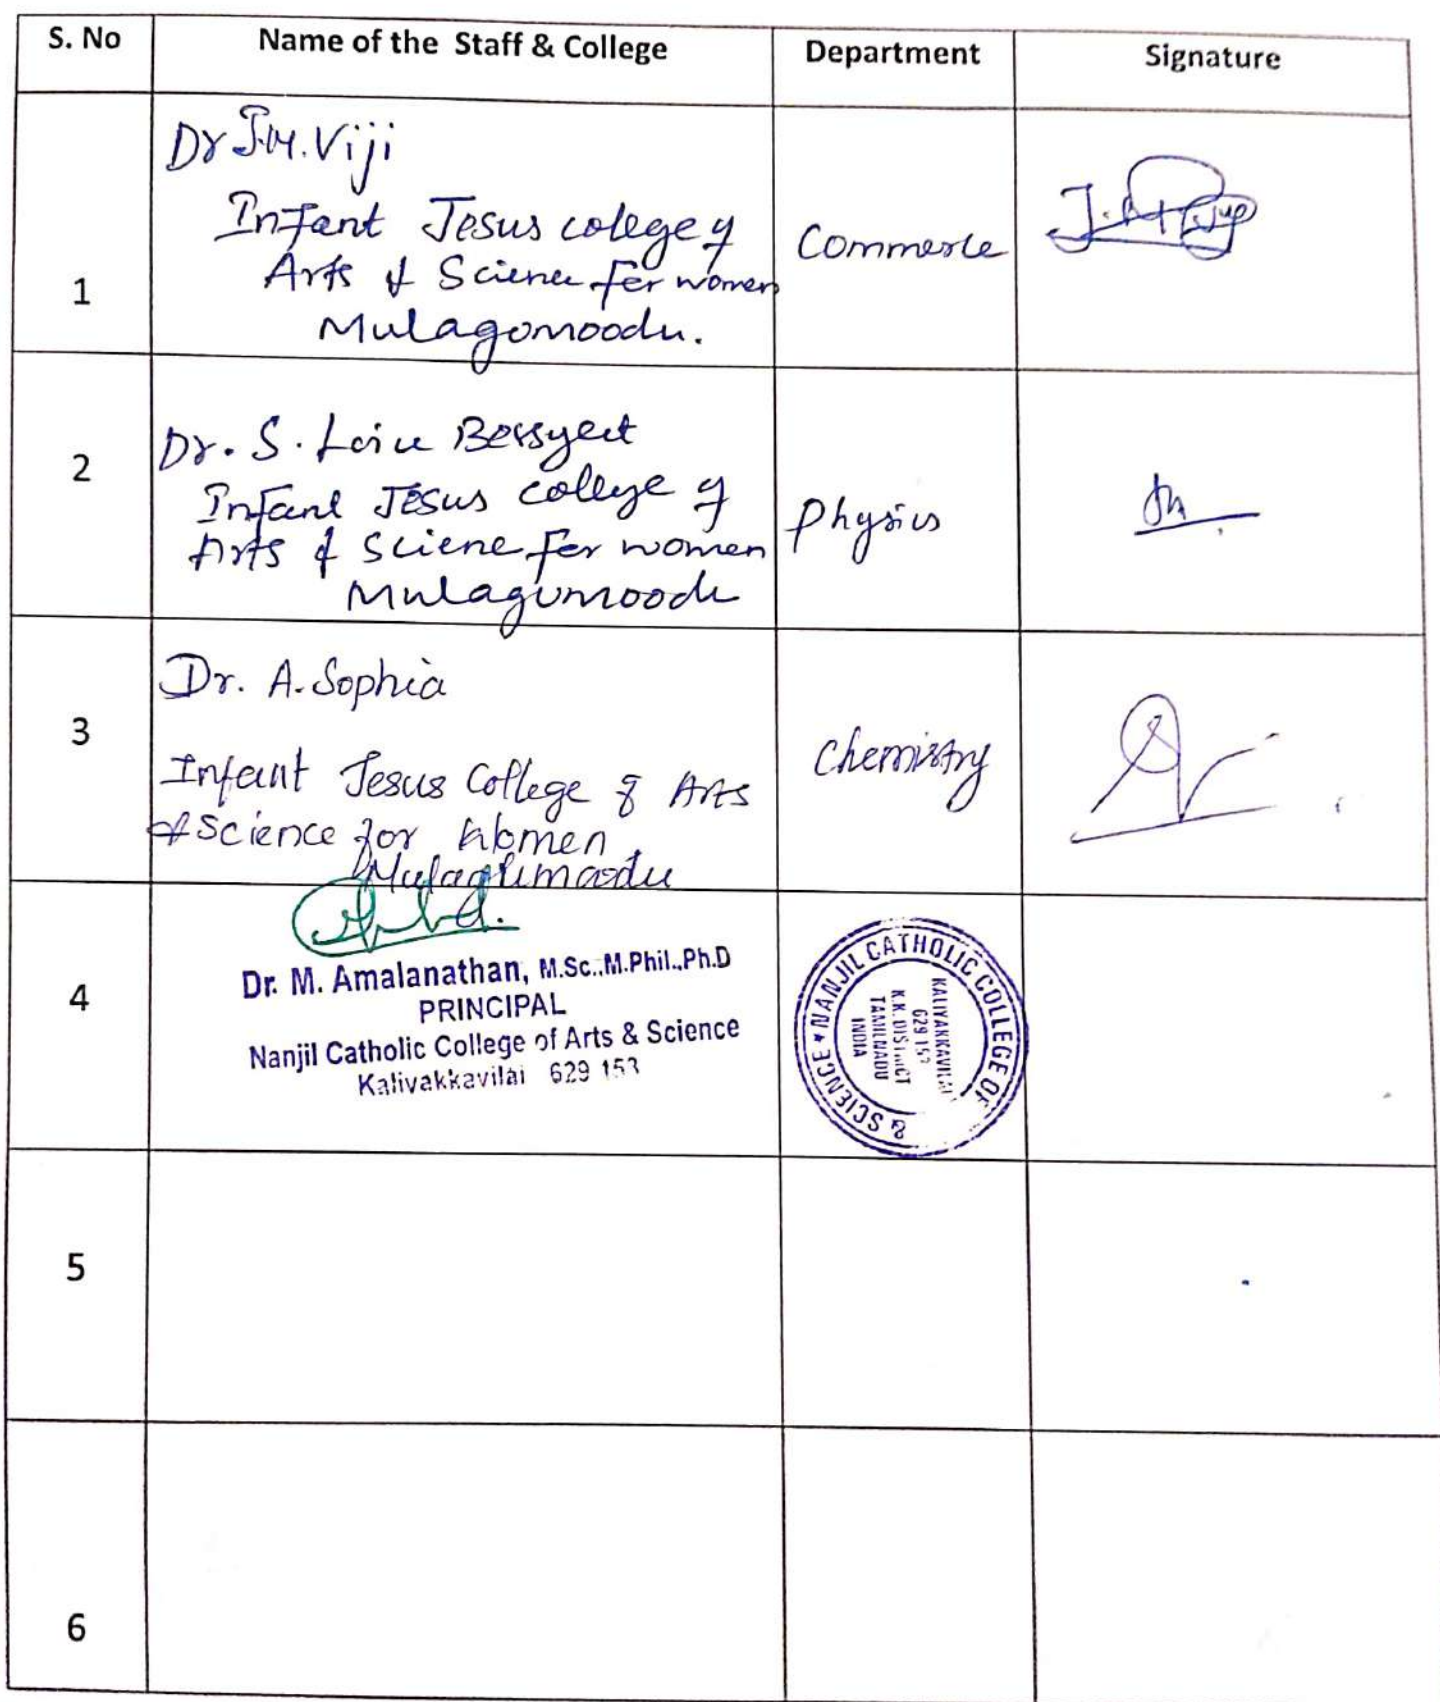 S. No Name of the Staff & College Department Signature
Dr J.M. Viji
Infant Jesus college of
Arts & Science for women
Mulagomoodu.
1
Commerce
2
Dr. S.
Infant Jesus college of
Arts & Sciene for women
Mulagumoodu
Physics
3
Dr. A. Sophia
Infant Jesus College of Arts
& Science for Women
Mulagumoodu
Chemistry
4
Dr. M. Amalanathan, M.Sc.,M.Phil.,Ph.D
PRINCIPAL
Nanjil Catholic College of Arts & Science
Kalivakkavilai 629 153
NANJIL CATHOLIC COLLEGE OF
& SCIENCE *
K.K. DISTRICT
TAMILNADU
INDIA
5
6